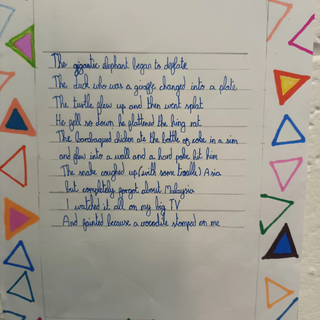 The gigantic elephant began to deflate
The duck who was a giraffe changed into a plate
The turtle flew up and then went splat
He fell so down he flattened the king rat
The bombaqued chicken ate the bottle of coke in a sim
and flew into a wall and a hard poke hit him
The snake coughed up (with some trouble) Asia
but completely forgot about Malaysia
I watched it all on my big TV
And fainted because a crocodile stomped on me